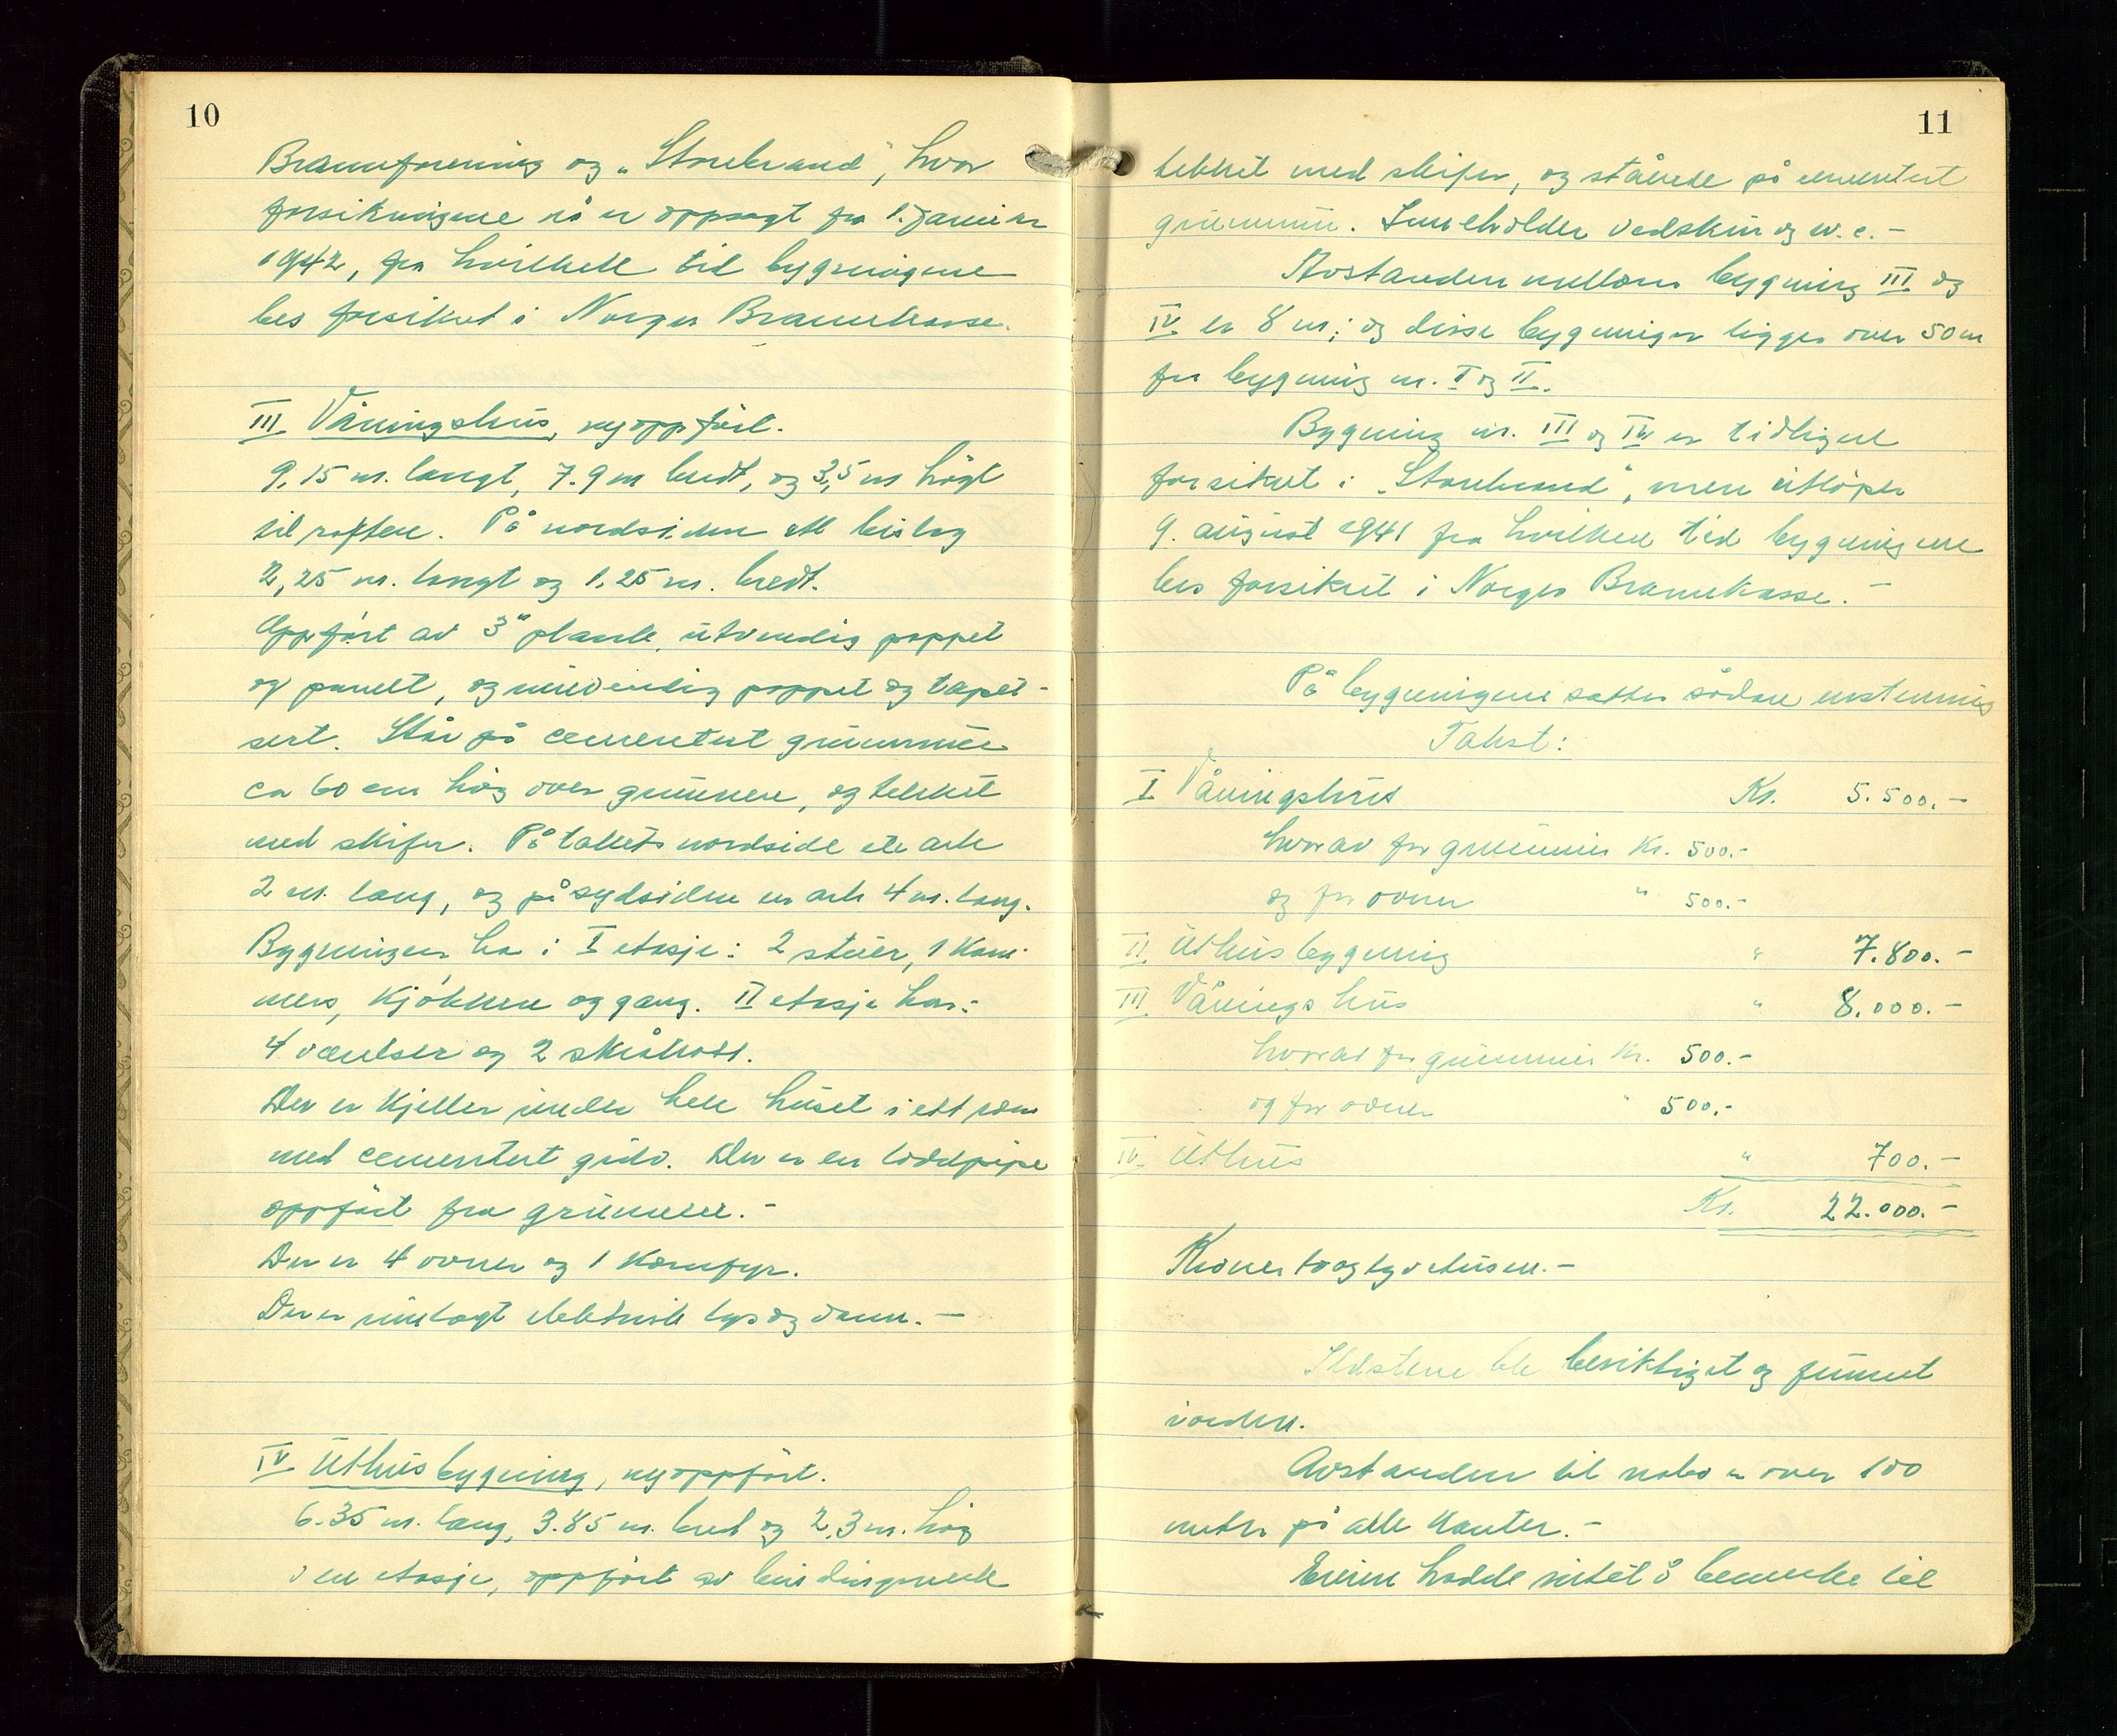 10
Brannforening og "Storebrand", hvor
forsikringene nå er oppsagt fra 1. januar
1942, fra hvilken tid bygningene
bes forsikret i Norges Brannkasse.
III Våningshus, nyoppført.
9,15 m. langt, 7.9 m bredt, og 3,5 m högt
til raften. På nordsiden ett bislag
2,25 m. langt og 1,25 m. bredt.
Oppført av 3" plank, utvendig pappet
og panelt, og innvendig pappet og tapet-
sert. Står på cementert grunnmur
ca 60 cm høg over grunnen, og tekket
med skifer. På takets nordside ete ark
2 m. lang, og på sydsiden en ark 4 m. lang.
Bygningen ha i I etasje: 2 stuer, 1 kam-
mers, kjøkken og gang. II etasje har:
4 værelser og 2 skråkott.
Der er kjeller under hele huset i ett rom
med cementert gulv. Der er en loddpipe
oppført fra grunnen. -
Der er 4 ovner og 1 komfyr.
Der er innlagt elektrisk lys og vann. -
IV Uthusbygning, nyoppført.
6.35 m. lang, 3.85 m. bred og 2,3 m. høg
i en etasje, oppført av bindingsverk
11
tekket med skifer, og stående på cementert
grunnmur. Inneholder vedskur og w.c. -
Avstanden mellom bygning III og
IV er 8 m; og disse bygninger ligger over 50 m
fra bygning nr. I og II.
Bygning nr. III og IV er tidligere
forsikret i "Storebrand", men utløper
9. august 1941 fra hvilken tid bygningene
bes forsikret i Norges Brannkasse. -
På bygningene sattes sådan enstemmig
Takst:
I Våningshus Kr. 5.500.-
hvorav for grunnmur Kr. 500.-
og for ovner " 500.-
II. Uthusbygning " 7.800.-
III. Våningshus " 8.000.-
hvorav for grunnmur Kr. 500.-
og for ovner " 500.-
IV. Uthus " 700.-
Kr. 22.000.-
Kroner toogtyvetusen. -
Ildstene ble besiktiget og funnet
i orden.
Avstanden til nabo er over 100
meter på alle kanter. -
Eieren hadde intet å bemerke til